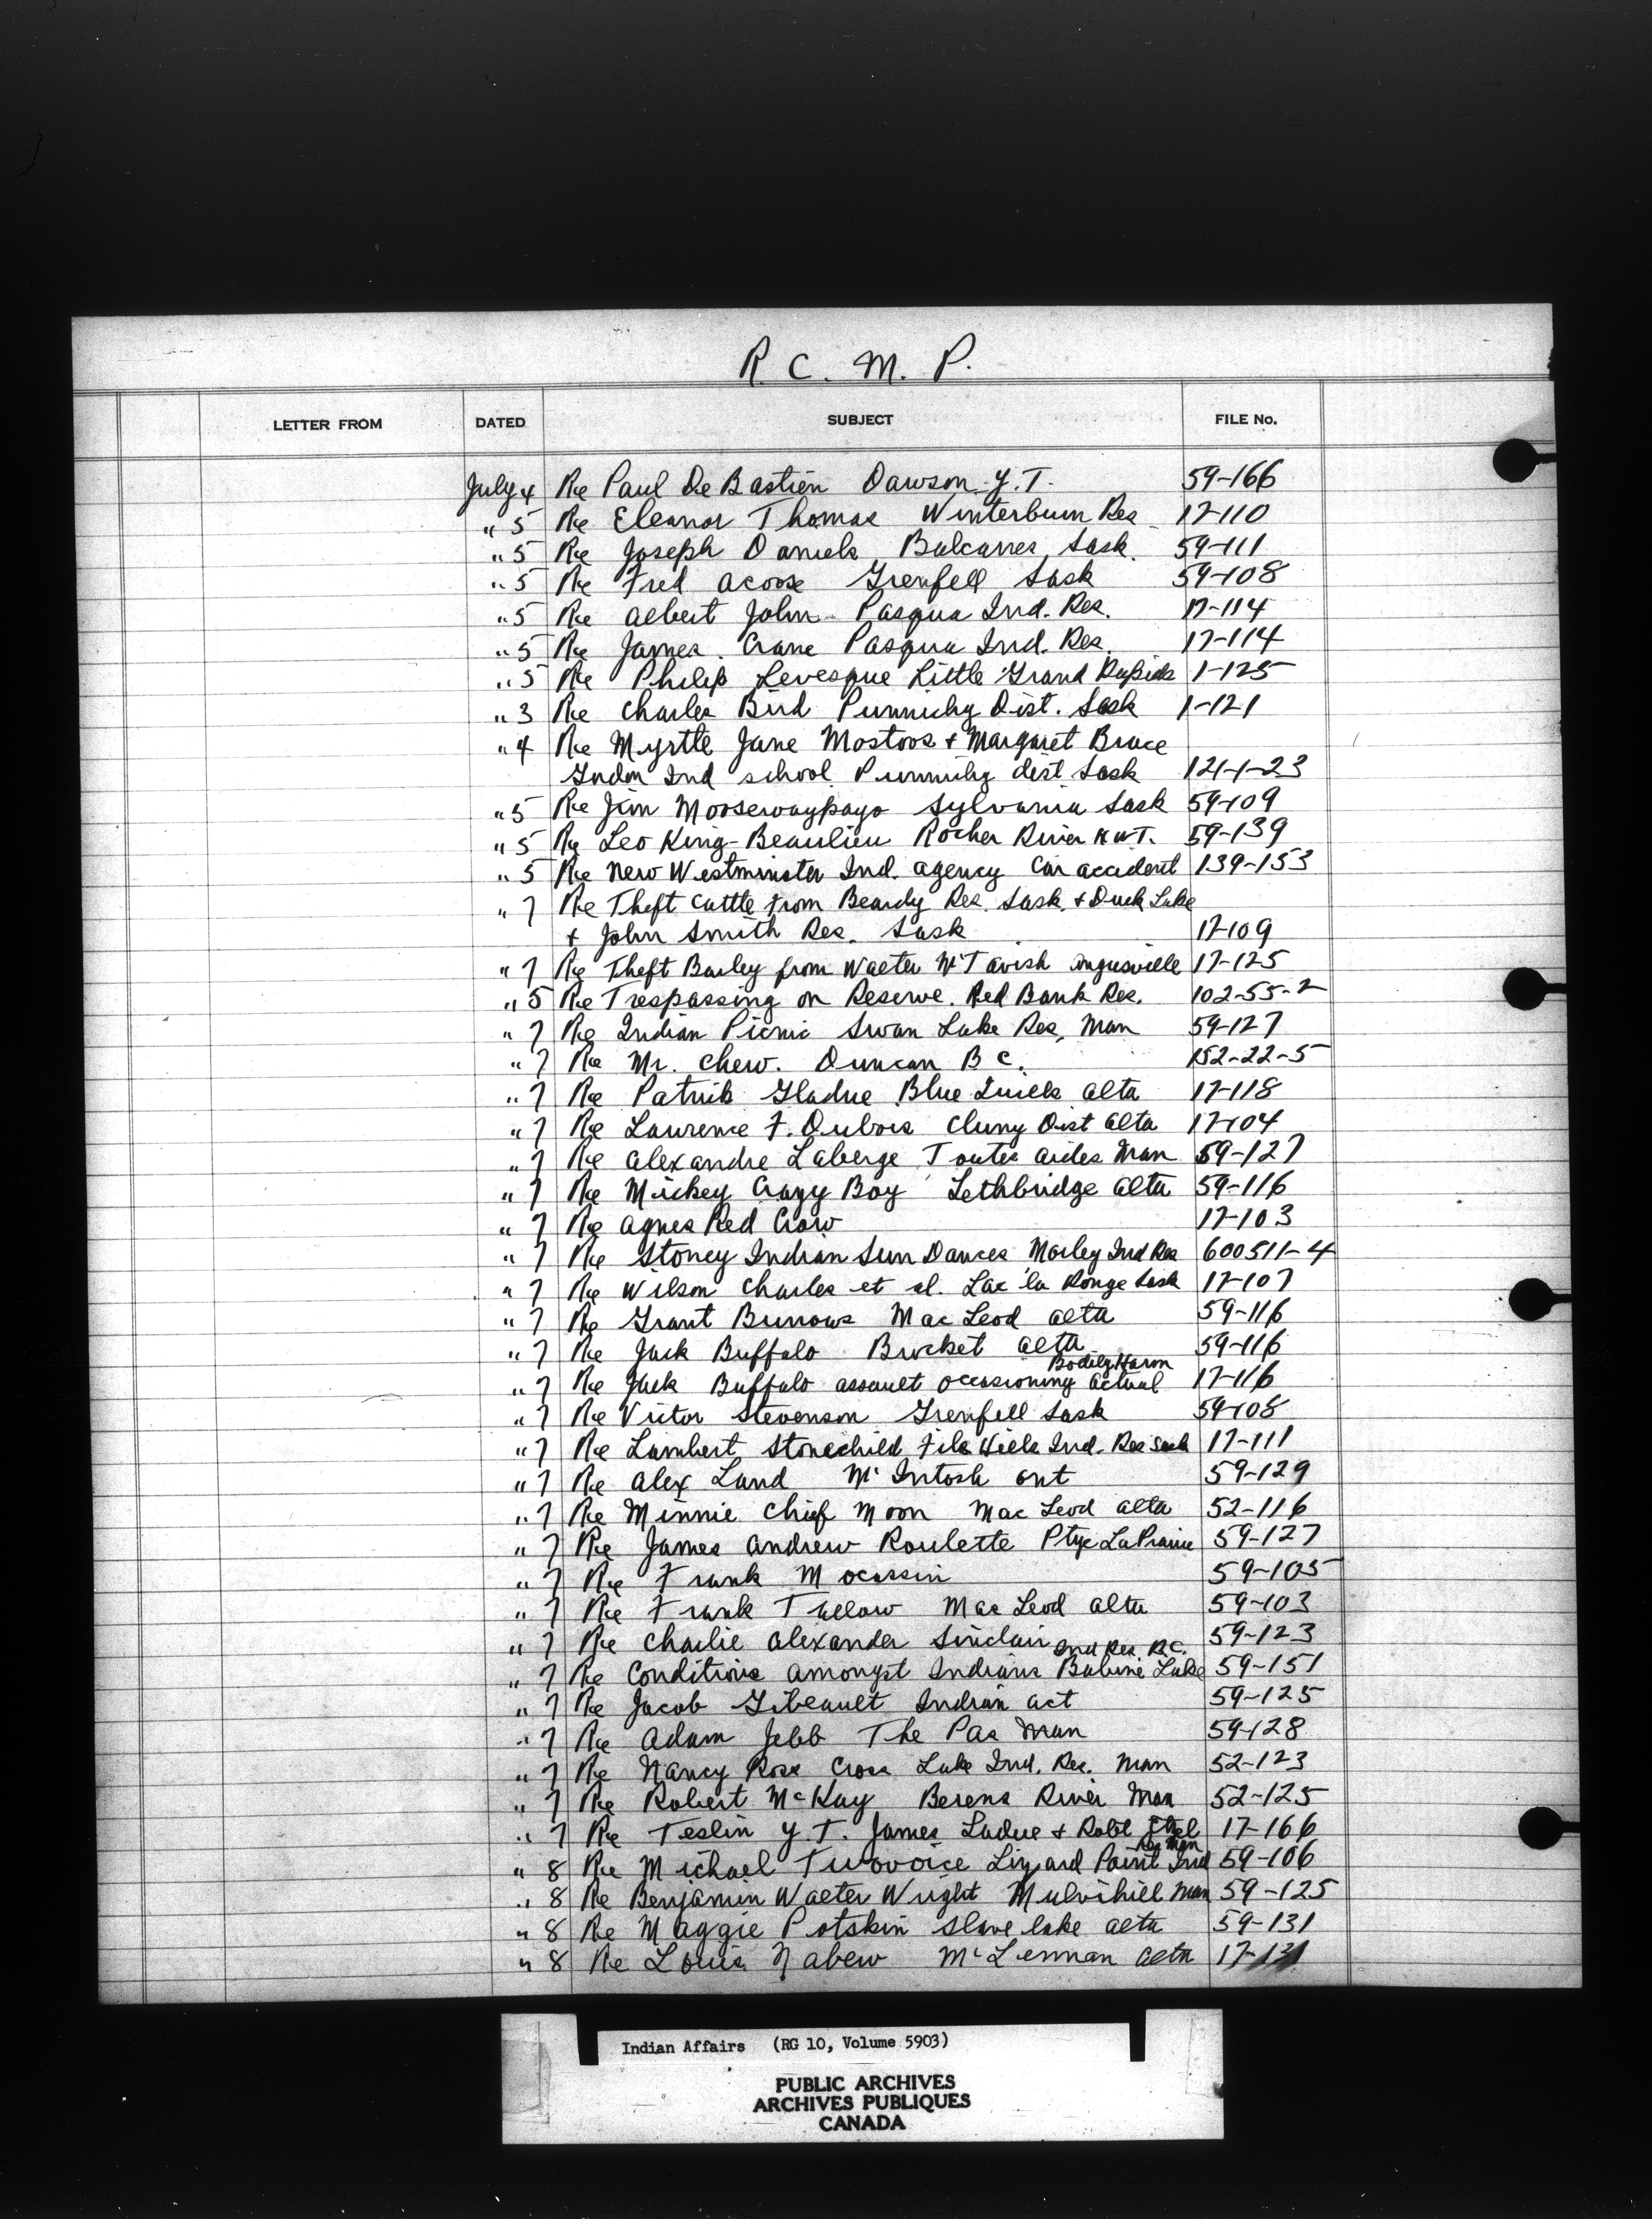 R. C. M. P.
LETTER FROM DATED SUBJECT FILE No.
July 4 Re Paul De Bastien Dawson Y.T. 59-166
" 5 Re Eleanor Thomas Winterburn Res 17-110
" 5 Re Joseph Daniels, Balcarres, Sask. 59-111
" 5 Re Fred Acoose Grenfell Sask 59-108
" 5 Re Albert John Pasqua Ind. Res. 17-114
" 5 Re James Crane Pasqua Ind. Res. 17-114
" 5 Re Philip Levesque Little Grand Rapids 1-125
" 3 Re Charles Bird Punnichy Dist. Sask 1-121
" 4 Re Myrtle Jane Mostoos + Margaret Bruce
Gordon Ind school Punnichy dist Sask 121-1-23
" 5 Re Jim Moosewaypayo Sylvania Sask 59-109
" 5 Re Leo King-Beaulieu Rocher River N.W.T. 59-139
" 5 Re New Westminster Ind. Agency Car accident 139-153
" 7 Re Theft Cattle from Beardy Res. Sask. + Duck Lake
+ John Smith Res. Sask 17-109
" 7 Re Theft Barley from Walter McTavish Angusville 17-125
" 5 Re Trespassing on Reserve. Red Bank Res. 102-55-2
" 7 Re Indian Picnic Swan Lake Res, Man 59-127
" 7 Re Mr. Chew. Duncan B C. 152-22-5
" 7 Re Patrick Gladue Blue Quills Alta 17-118
" 7 Re Laurence F. Dubois Cluny Dist Alta 17-104
" 7 Re Alexandre Laberge Toutes Aides Man 59-127
" 7 Re Mickey Crazy Boy Lethbridge Alta 59-116
" 7 Re Agnes Red Crow 17-103
" 7 Re Stoney Indian Sun Dances Morley Ind Res 600511-4
" 7 Re Wilson Charles et al. Lac la Ronge Sask 17-107
" 7 Re Grant Burrows MacLeod Alta 59-116
" 7 Re Jack Buffalo Brocket Alta 59-116
Bodily Harm
" 7 Re Jack Buffalo assault occasioning actual 17-116
" 7 Re Victor Stevenson Grenfell Sask 59-108
" 7 Re Lambert Stonechild File Hills Ind. Res Sask 17-111
" 7 Re Alex Land McIntosh Ont 59-129
" 7 Re Minnie Chief Moon MacLeod Alta 52-116
" 7 Re James Andrew Roulette Ptge LaPrairie 59-127
" 7 Re Frank Mocassin 59-105
" 7 Re Frank Tallow MacLeod Alta 59-103
" 7 Re Charlie Alexander Sinclair 59-123
Ind Res B.C.
" 7 Re Conditions amongst Indians Babine Lake 59-151
" 7 Re Jacob Gibeault Indian Act 59-125
" 7 Re Adam Jebb The Pas Man 59-128
" 7 Re Nancy Ross Cross Lake Ind. Res. Man 52-123
" 7 Re Robert McKay Berens River Man 52-125
" 7 Re Teslin Y.T. James Ladue + Robt 17-166
Res Man
" 8 Re Michael Twovoice Lizard Point Ind 59-106
" 8 Re Benjamin Walter Wright Mulvihill Man 59-125
" 8 Re Maggie Potskin Slave lake Alta 59-131
" 8 Re Louis Nabew McLennan Alta 17-131
Indian Affairs (RG 10, Volume 5903)
PUBLIC ARCHIVES
ARCHIVES PUBLIQUES
CANADA